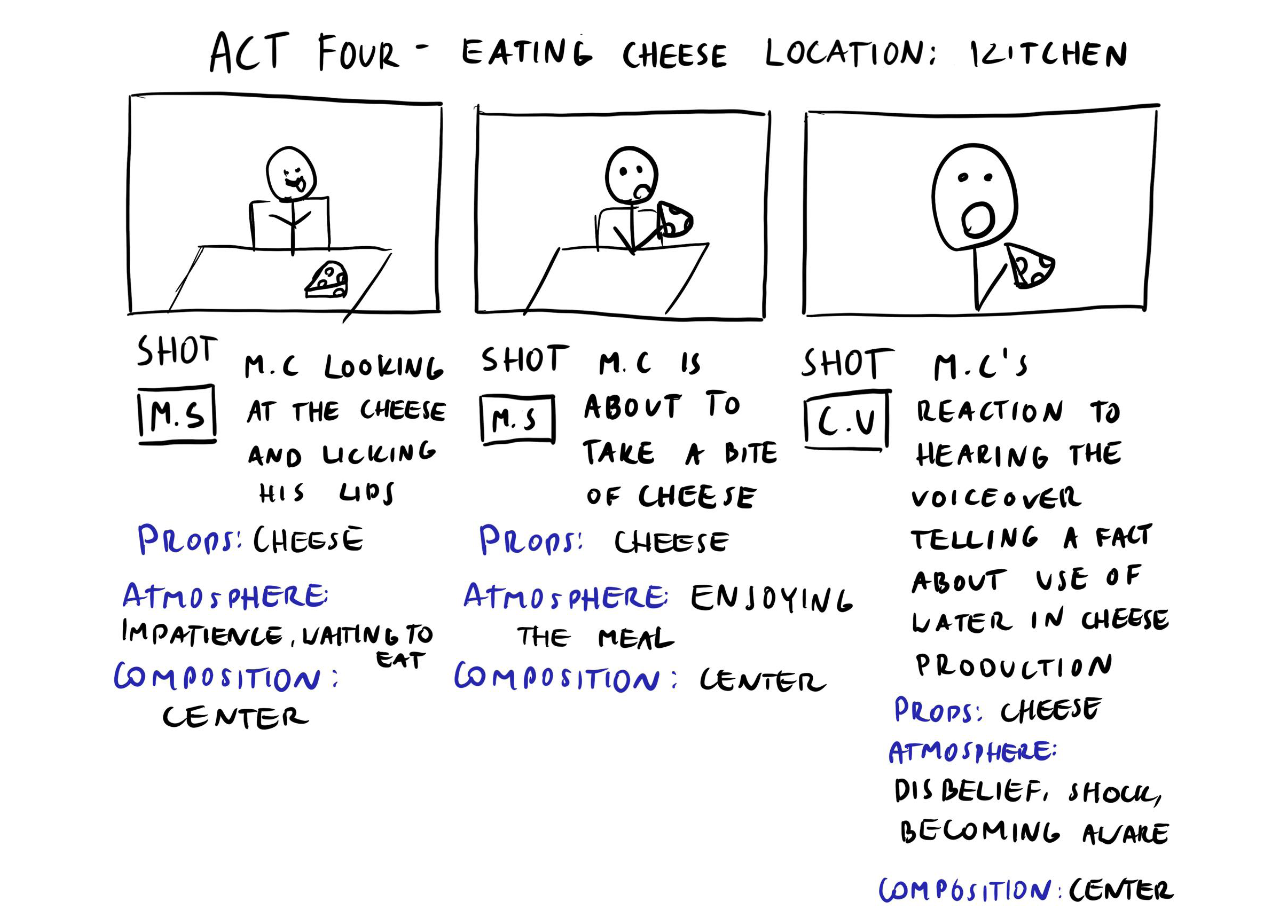 ACT FOUR - EATING CHEESE LOCATION: KITCHEN
SHOT
M.S
M.C LOOKING
AT THE CHEESE
AND LICKING
HIS LIPS
PROPS: CHEESE
ATMOSPHERE:
IMPATIENCE, WAITING TO
EAT
COMPOSITION:
CENTER
SHOT
M.S
M.C IS
ABOUT TO
TAKE A BITE
OF CHEESE
PROPS: CHEESE
ATMOSPHERE: ENJOYING
THE MEAL
COMPOSITION: CENTER
SHOT
C.U
M.C'S
REACTION TO
HEARING THE
VOICEOVER
TELLING A FACT
ABOUT USE OF
WATER IN CHEESE
PRODUCTION
PROPS: CHEESE
ATMOSPHERE:
DISBELIEF, SHOCK,
BECOMING AWARE
COMPOSITION: CENTER